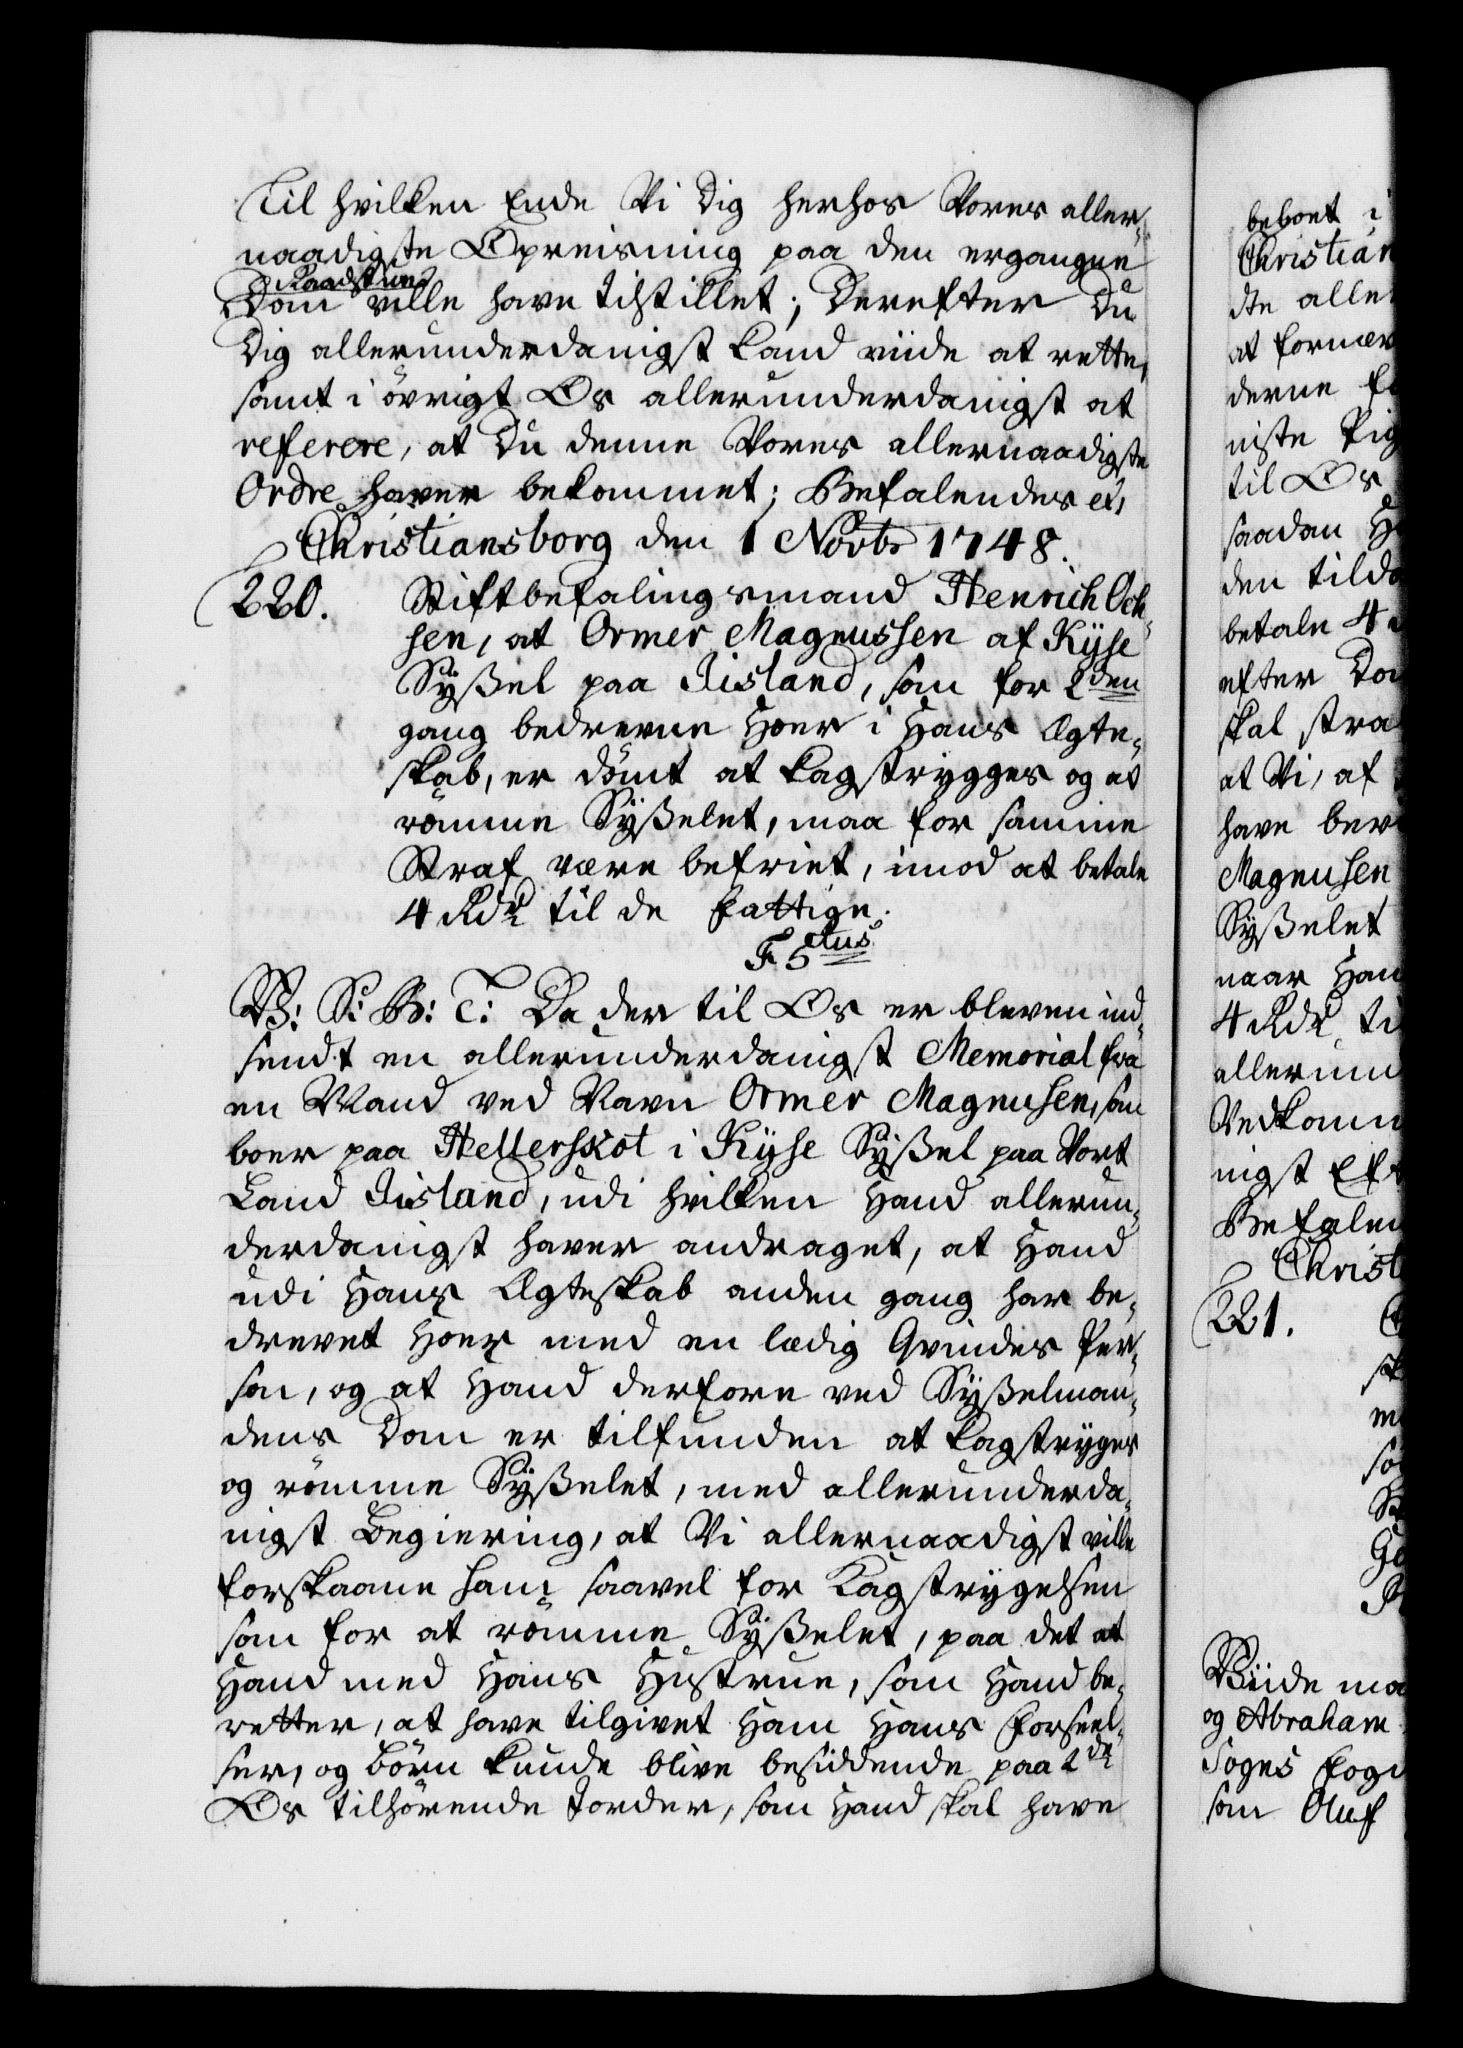 Til hvilken Ende Vi dig herhos Vores aller¬
naadigste Opreisning paa den ergangne
Raadstue
Dom ville have tilstillet; Derefter Du
dig allerunderdanigst kand viide at rette,
samt i övrigt Os allerunderdanigst at
referere, at Du denne Vores allernaadigste
Ordre haver bekommet; Befalendes etc
Christiansborg den 1 Novbr 1748.
220. Stiftbefalingsmand Henrich Och¬
sen, at Ormer Magnussen af Kÿse
Sÿßel paa Iisland, som for 2den
gang bedrevne Hoer i Hans Ægte¬
skab, er dömt at kagstrygges og at
römme Sÿßelet, maa for samme
Straf være befriet, imod at betale
4 Rdr til de fattige.
F 5tus
V: S: B: T: Da der til Os er bleven ind¬
sendt en allerunderdanigst Memorial fra
en Mand ved Navn Ormer Magnussen, som
boer paa Hellerskot i Kÿse Sÿßel paa Vort
Land Iisland, udi hvilken Hand allerun¬
derdanigst haver andraget, at Hand
udi Hans Ægteskab anden gang har be¬
drevet Hoer med en lædig Qvindes Per¬
son, og at Hand derfore ved Sÿßelman¬
dens Dom er tilfunden at kagstryges
og römme Sÿßelet, med allerunderda¬
nigst Begiering, at Vi allernaadigst ville
forskaane ham saavel for Kagstrygelsen
som for at römme Sÿßelet, paa det at
Hand med Hans Hustrue, som Hand be¬
retter, at have tilgivet Ham Hans Forseel¬
ser, og börn kunde blive besiddende paa 2de
Os tilhörende Jorder, som Hand skal have
beboet i
Christian
dte aller
at fornær
derne
niste
til Os
saadan
den tildö
betale 4
efter Dom
skal stra
at Vi, af
have bev
Magnussen
Sÿßelet
naar Han
4 Rdr ti
allerun
Vedkomm
nigst Eft
Befalen
Christ
221.
Viide ma
og Abraham
Soges fogd
som Oluf